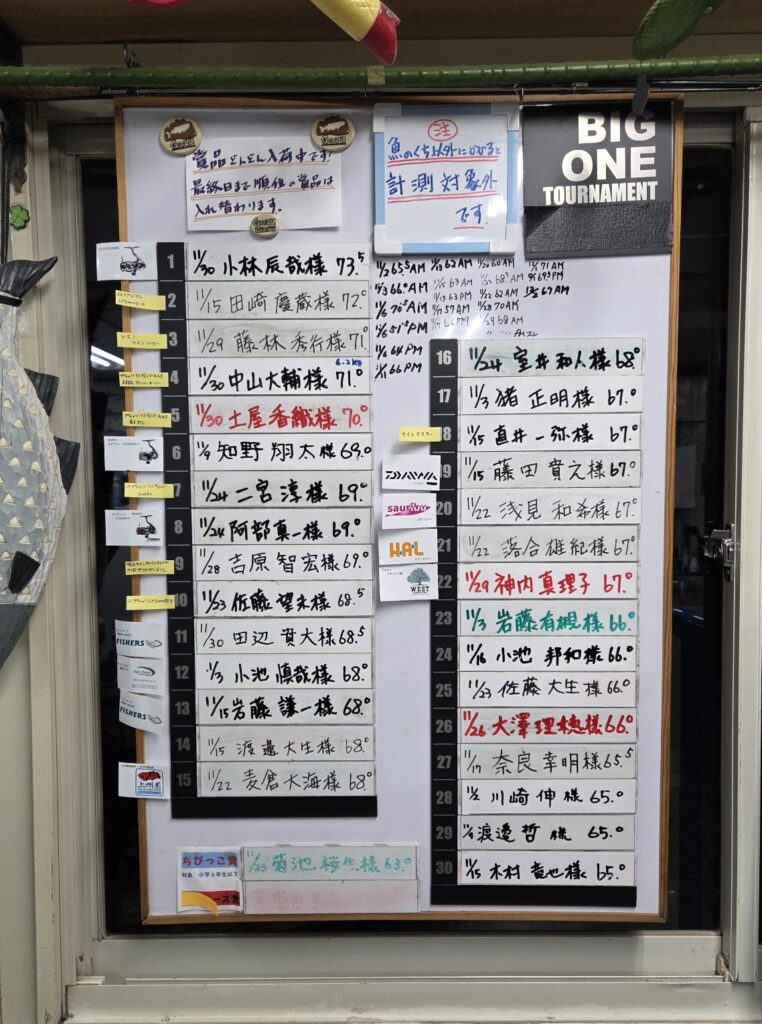 賞品どんどん入荷中です!
最終日まで順位の賞品は
入れ替わります。
注
魚のくち以外にかかると
計測対象外
です
BIG
ONE
TOURNAMENT
1 11/30 小林辰哉様 73.5
2 11/15 田崎慶蔵様 72.0
3 11/29 藤林秀行様 71.0
6.2kg
4 11/30 中山大輔様 71.0
5 11/30 土屋香織様 70.0
6 11/9 知野翔太様 69.0
7 11/24 二宮淳様 69.0
8 11/24 阿部真一様 69.0
9 11/28 吉原智宏様 69.0
10 11/23 佐藤望未様 68.5
11 11/30 田辺貴大様 68.5
12 11/3 小池慎哉様 68.0
13 11/15 岩藤謙一様 68.0
14 11/15 渡邊大生様 68.0
15 11/22 麦倉大海様 68.0
FISHERS
FISHERS
上州屋
11/2 65.5 AM
11/3 66.0 AM
11/6 64 PM
11/22 62 AM
16 11/24 室井和人様 68.0
17 11/3 猪正明様 67.0
18 11/15 直井一弥様 67.0
19 11/15 藤田貴之様 67.0
20 11/22 浅見和希様 67.0
21 11/22 落合雄紀様 67.0
22 11/29 神内真理子 67.0
23 11/3 岩藤有槻様 66.0
24 11/16 小池邦和様 66.0
25 11/23 佐藤大生様 66.0
26 11/26 大澤理穂様 66.0
27 11/17 奈良幸明様 65.5
28 11/2 川崎伸様 65.0
29 11/9 渡邊哲様 65.0
30 11/15 木村竜也様 65.0
サイトマスター
DAIWA
HAL
WEST
ちびっこ賞
対象 小学6年生以下
11/23 菊池桜生様 63.0